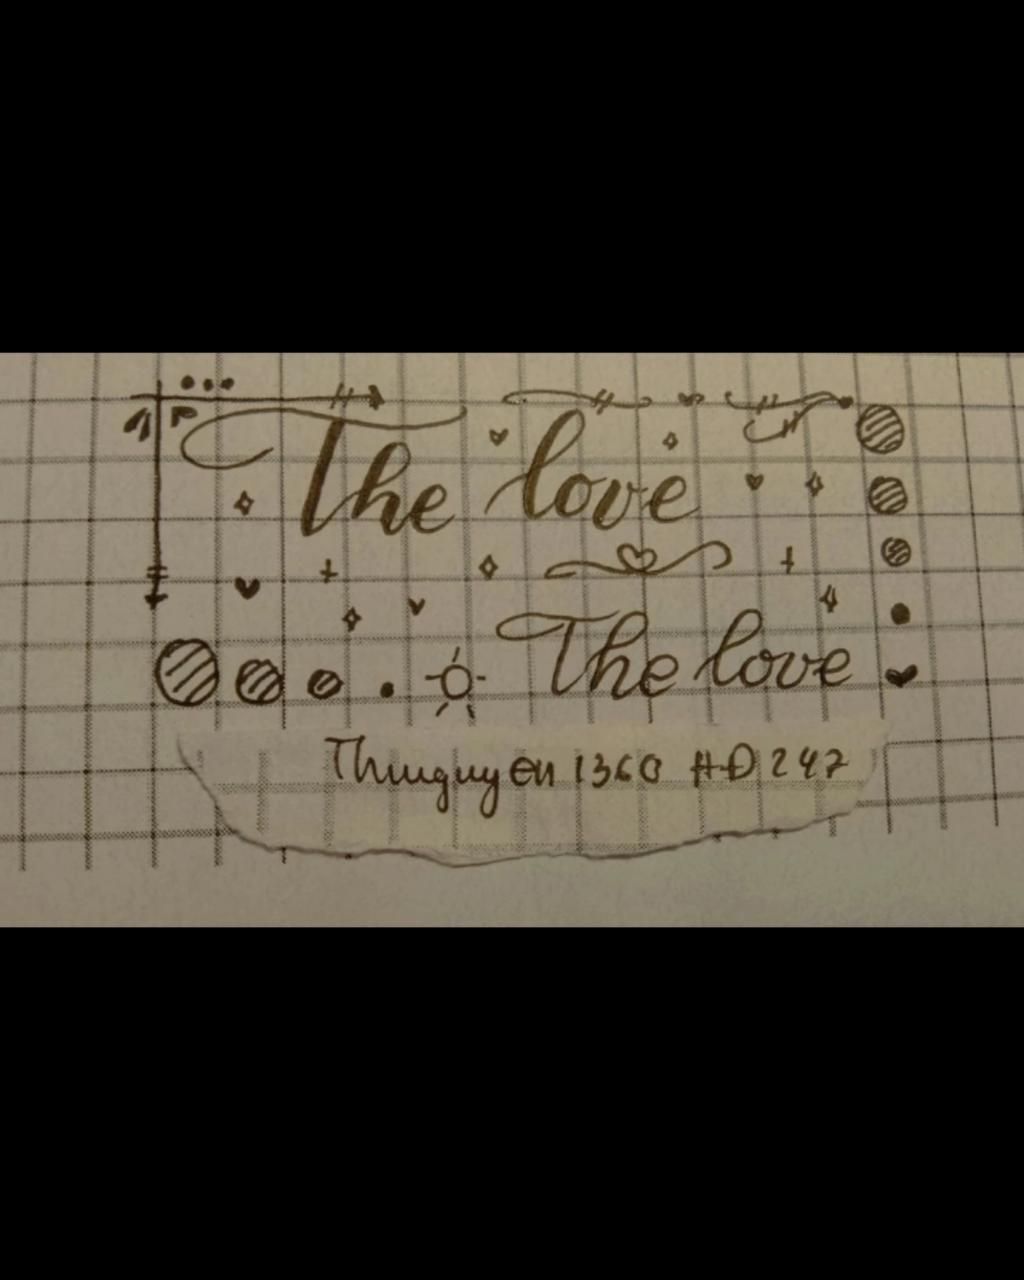 The love
The love
Thuuguyen 1360 HĐ247